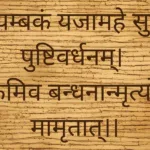 यम्बकं यजामहे सु
पुष्टिवर्धनम्।
मिव बन्धनान्मृत्य
मामृतात्।।